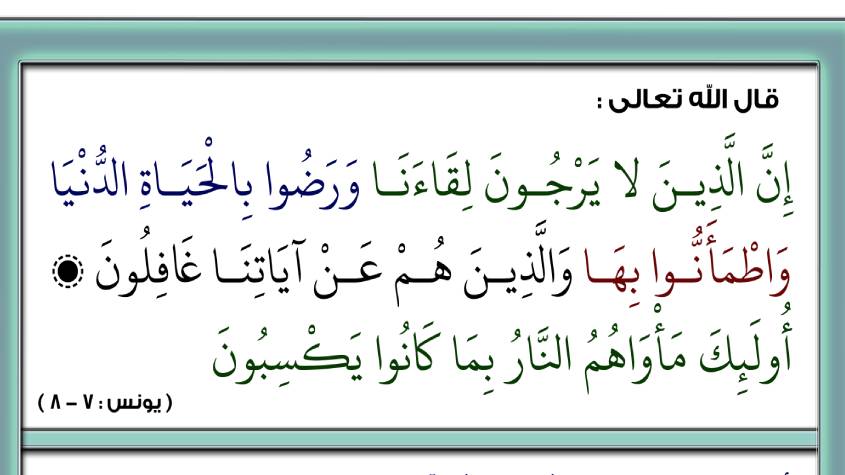 قال الله تعالى :
إِنَّ الَّذِيـنَ لا يَرْجُـونَ لِقَاءَنَـا وَرَضُوا بِالْحَيَـاةِ الدُّنْيَا
وَاطْمَأَنُّـوا بِهَـا وَالَّذِيـنَ هُـمْ عَـنْ آيَاتِنَـا غَافِلُونَ
أُولَئِكَ مَأْوَاهُمُ النَّارُ بِمَا كَانُوا يَكْسِبُونَ
( يونس : ٧ - ٨ )